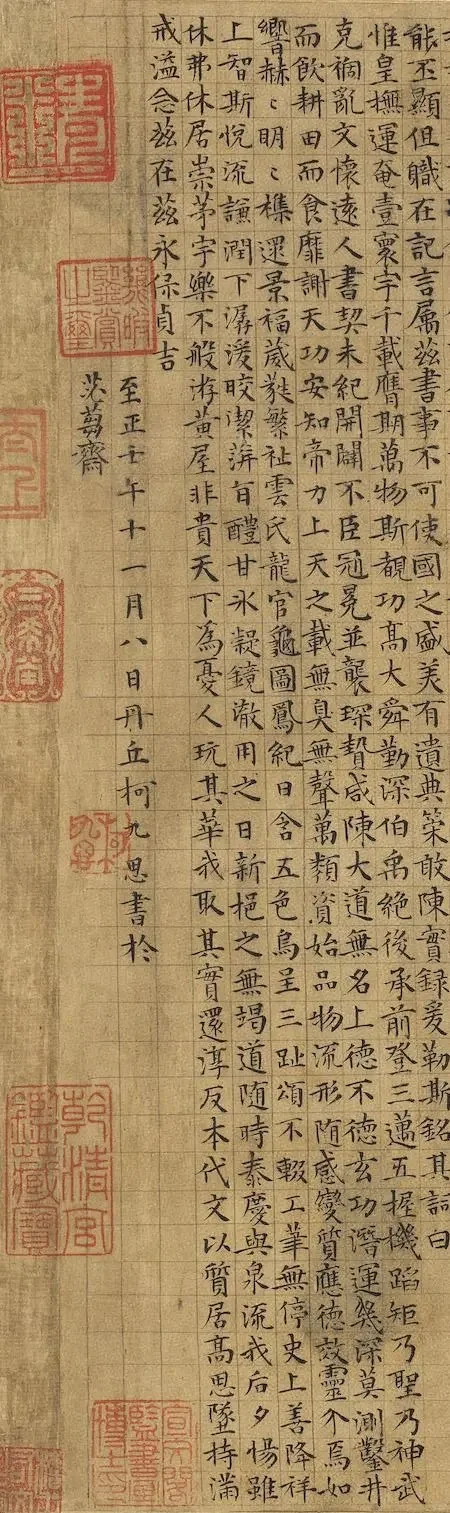 能丕顯但職在記言属茲書事不可使國之盛美有遺典策敢陳實録爰勒斯銘其詞曰
惟皇撫運奄壹寰宇千載膺期萬物斯覩功髙大舜勤深伯禹絶後承前登三邁五握機蹈矩乃聖乃神武
克禍亂文懷遠人書契未紀開闢不臣冠冕並襲琛贄咸陳大道無名上德不德玄功潛運幾深莫測鑿井
而飲耕田而食靡謝天功安知帝力上天之載無臭無聲萬類資始品物流形随感變質應德效靈介焉如
響赫〻明〻雜遝景福葳蕤繁祉雲氏龍官龜圖鳳紀日含五色烏呈三趾頌不輟工筆無停史上善降祥
上智斯悅流謙潤下潺湲皎潔蓱旨醴甘氷凝鏡澈用之日新挹之無竭道随時泰慶與泉流我后夕惕雖
休弗休居崇茅宇樂不般游黃屋非貴天下為憂人玩其華我取其實還淳反本代文以質居髙思墜持滿
戒溢念茲在茲永保貞吉
至正壬午十一月八日丹丘柯九思書於
苾蒭齋
柯九思
宣文閣監書畫博士印
乾清宮鑑藏寶